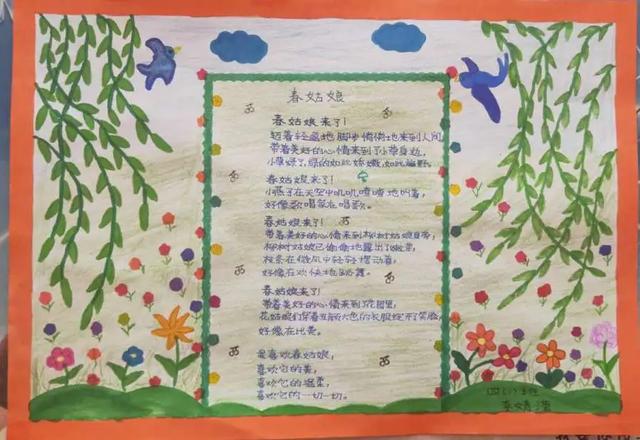 春姑娘
春姑娘来了!
迈着轻盈地脚步悄悄地来到人间,
带着美好的心情来到了小草身边,
小草绿了,绿的如此娇嫩,如此
春姑娘来了!
小燕子在天空中叽叽喳喳地叫着,
好像歌唱家在唱歌。
春姑娘来了!
带着美好的心情来到柳树姑娘身旁;
柳树姑娘已偷偷地露出了嫩芽,
枝条在微风中轻轻摆动着,
好像在欢快地跳舞。
春姑娘来了!
带着美好的心情来到花园里,
花姑娘们穿着五颜六色的衣服绽开了笑脸,
好像在比美。
我喜欢春姑娘,
喜欢它的美,
喜欢它的温柔,
喜欢它的一切一切。